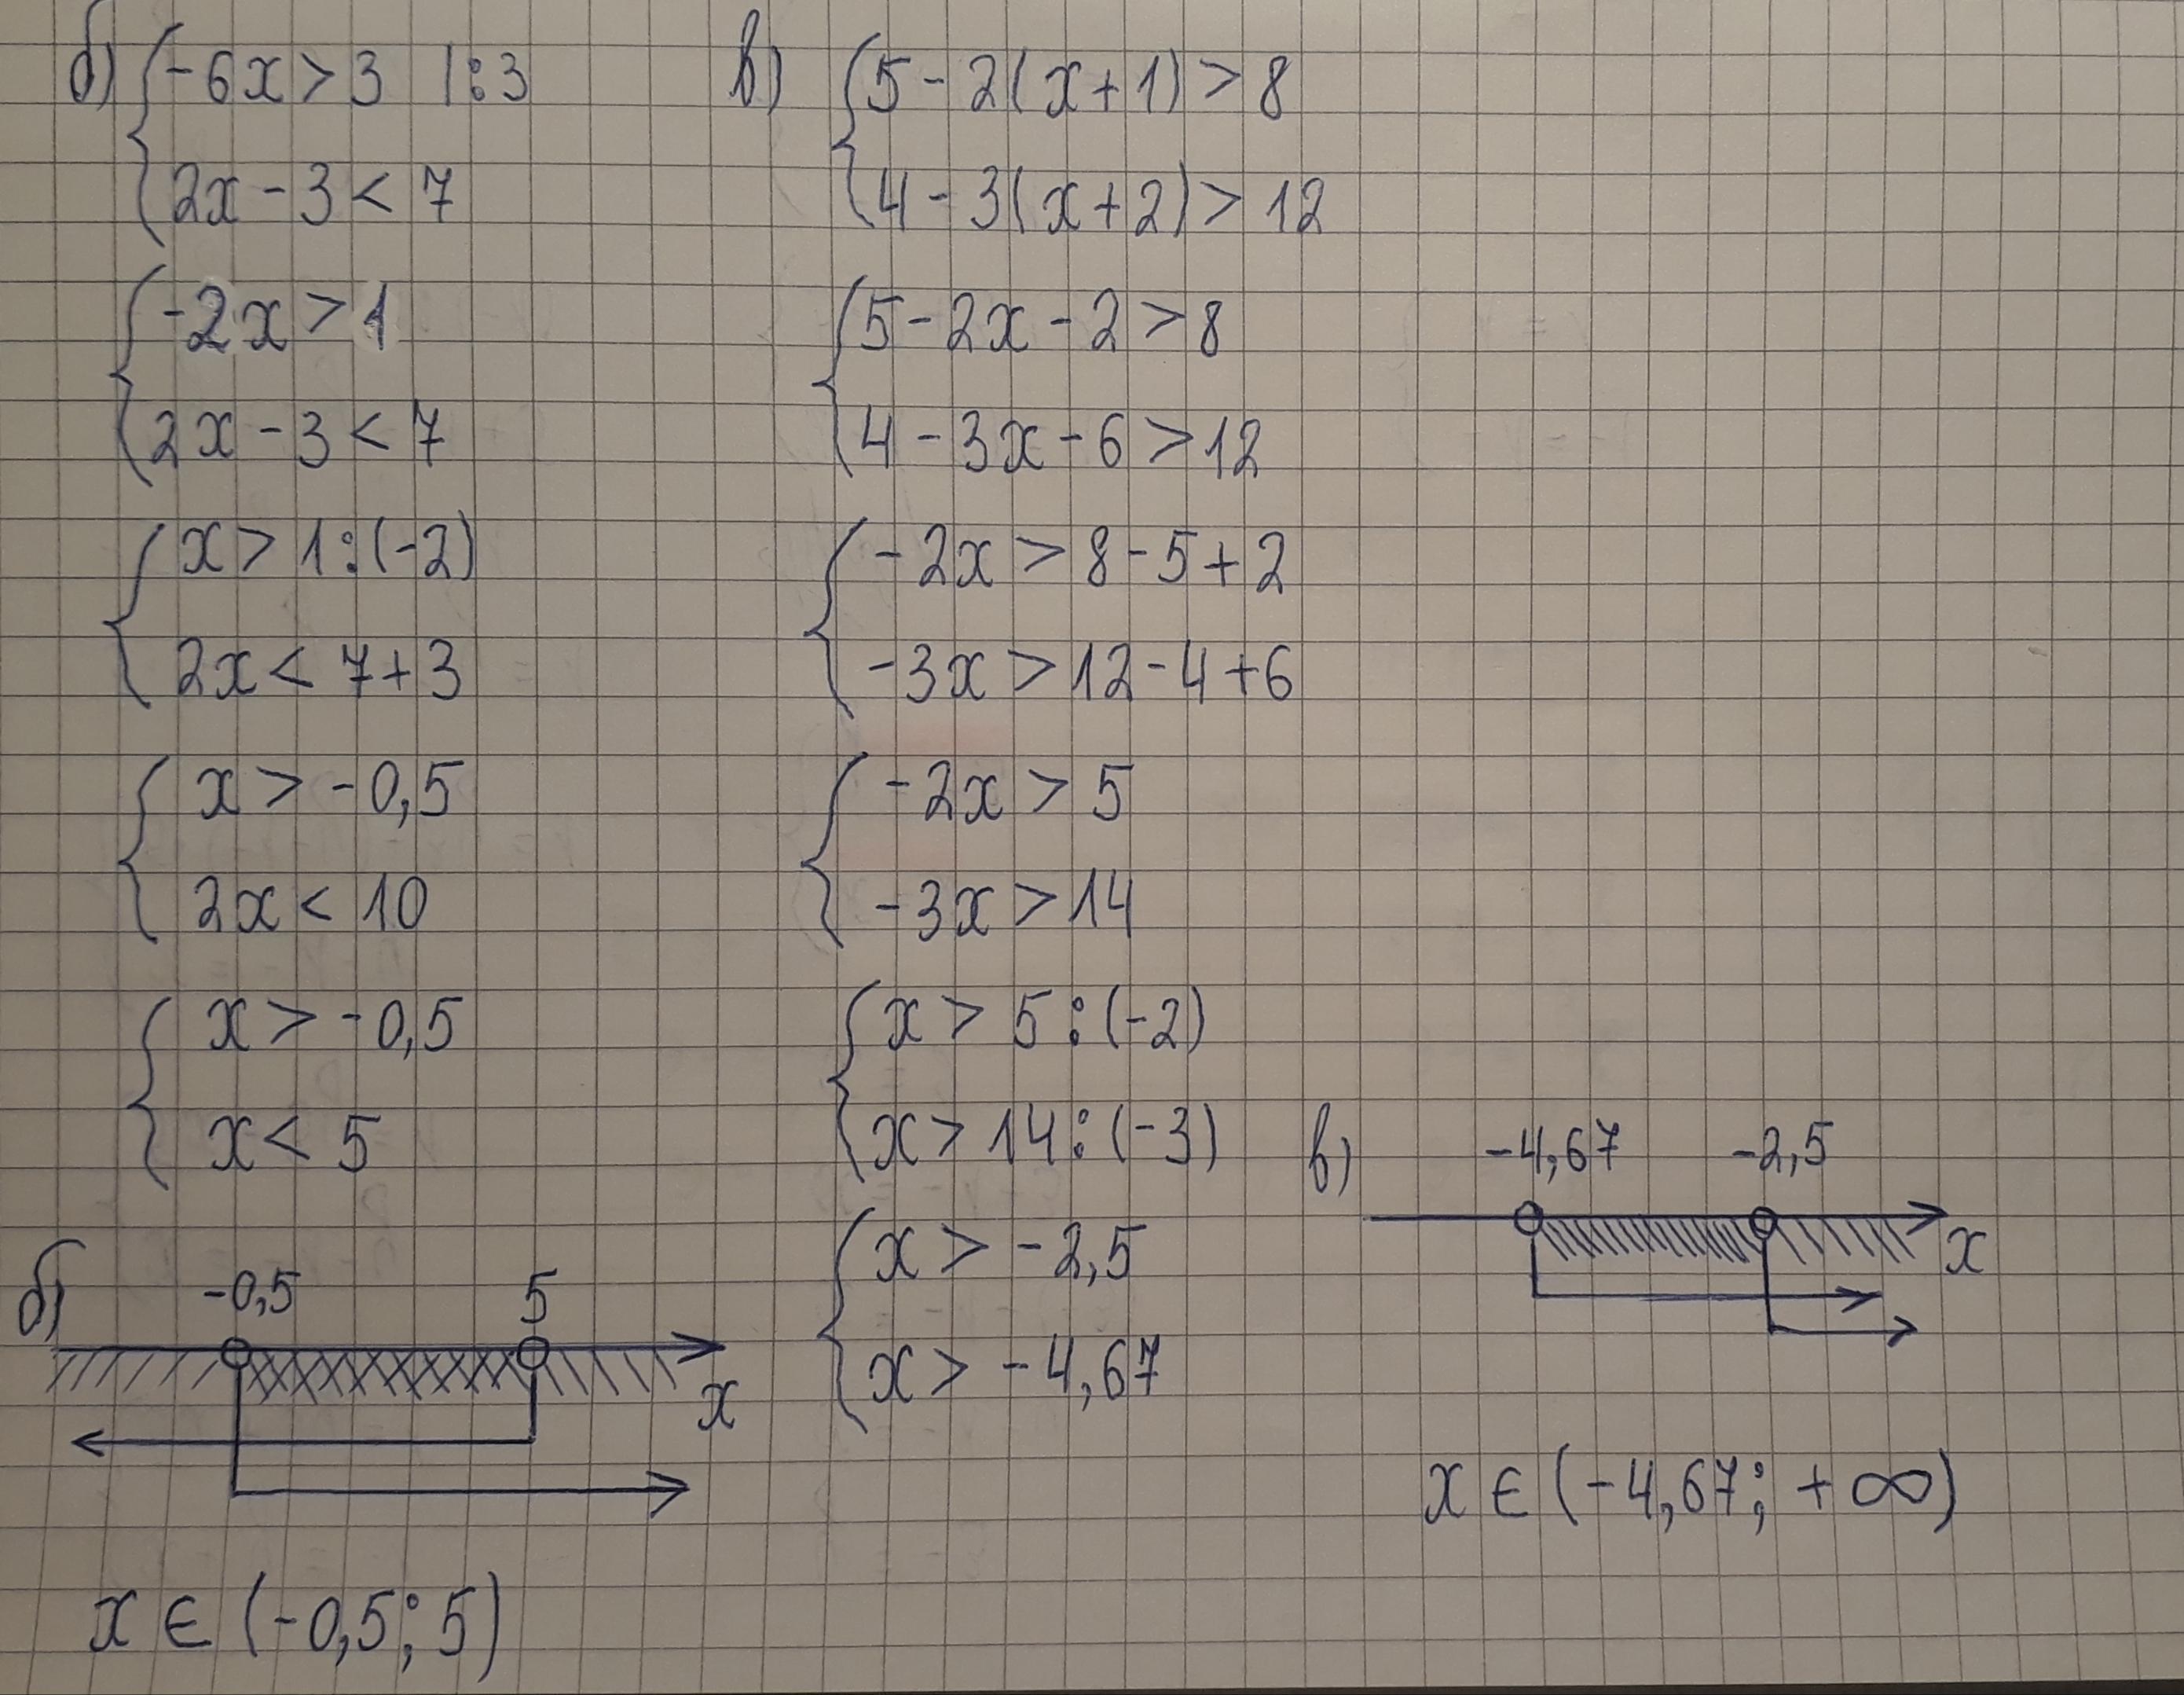 б) { -6x > 3 |:3
2x - 3 < 7
{ -2x > 1
2x - 3 < 7
{ x > 1:(-2)
2x < 7+3
{ x > -0,5
2x < 10
{ x > -0,5
x < 5
б) -0,5 5
x
x ∈ (-0,5; 5)
в) { 5 - 2(x+1) > 8
4 - 3(x+2) > 12
{ 5 - 2x - 2 > 8
4 - 3x - 6 > 12
{ -2x > 8 - 5 + 2
-3x > 12 - 4 + 6
{ -2x > 5
-3x > 14
{ x > 5:(-2)
x > 14:(-3)
{ x > -2,5
x > -4,67
в) -4,67 -2,5
x
x ∈ (-4,67; +∞)